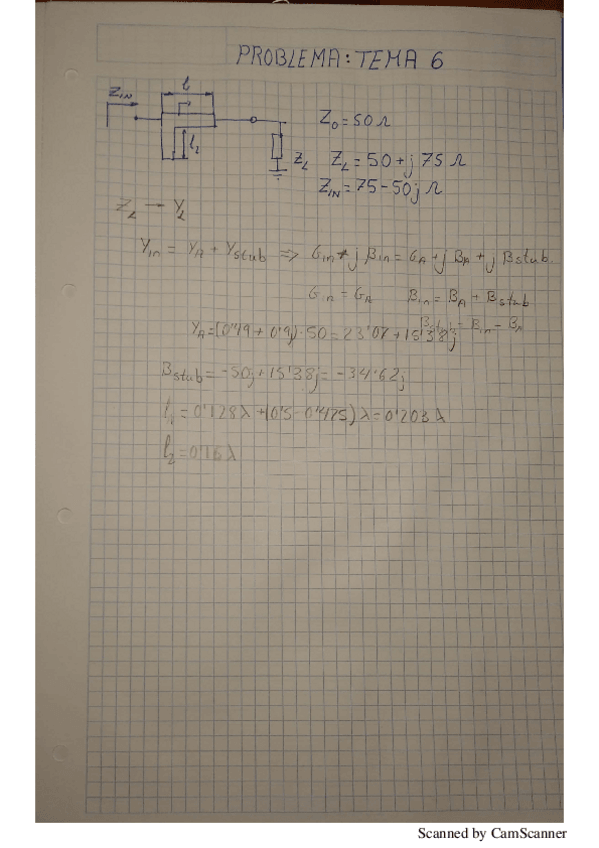 PROBLEMA: TEMA 6
Z_IN l
l_1
Z_0 = 50 Ω
Z_L Z_L = 50 + j 75 Ω
Z_IN = 75 - 50j Ω
Z_L — Y_L
Y_in = Y_A + Y_stub ⇒ G_in + j B_in = G_A + j B_A + j B_stub
G_in = G_A B_in = B_A + B_stub
B_stub = B_in - B_A
Y_A = (0'49 + 0'9j)·50 = 23'07 + 15'38j
B_stub = -50j + 15'38j = -34'62j
l_1 = 0'128λ + (0'5 - 0'425)λ = 0'203λ
l_2 = 0'16λ
Scanned by CamScanner